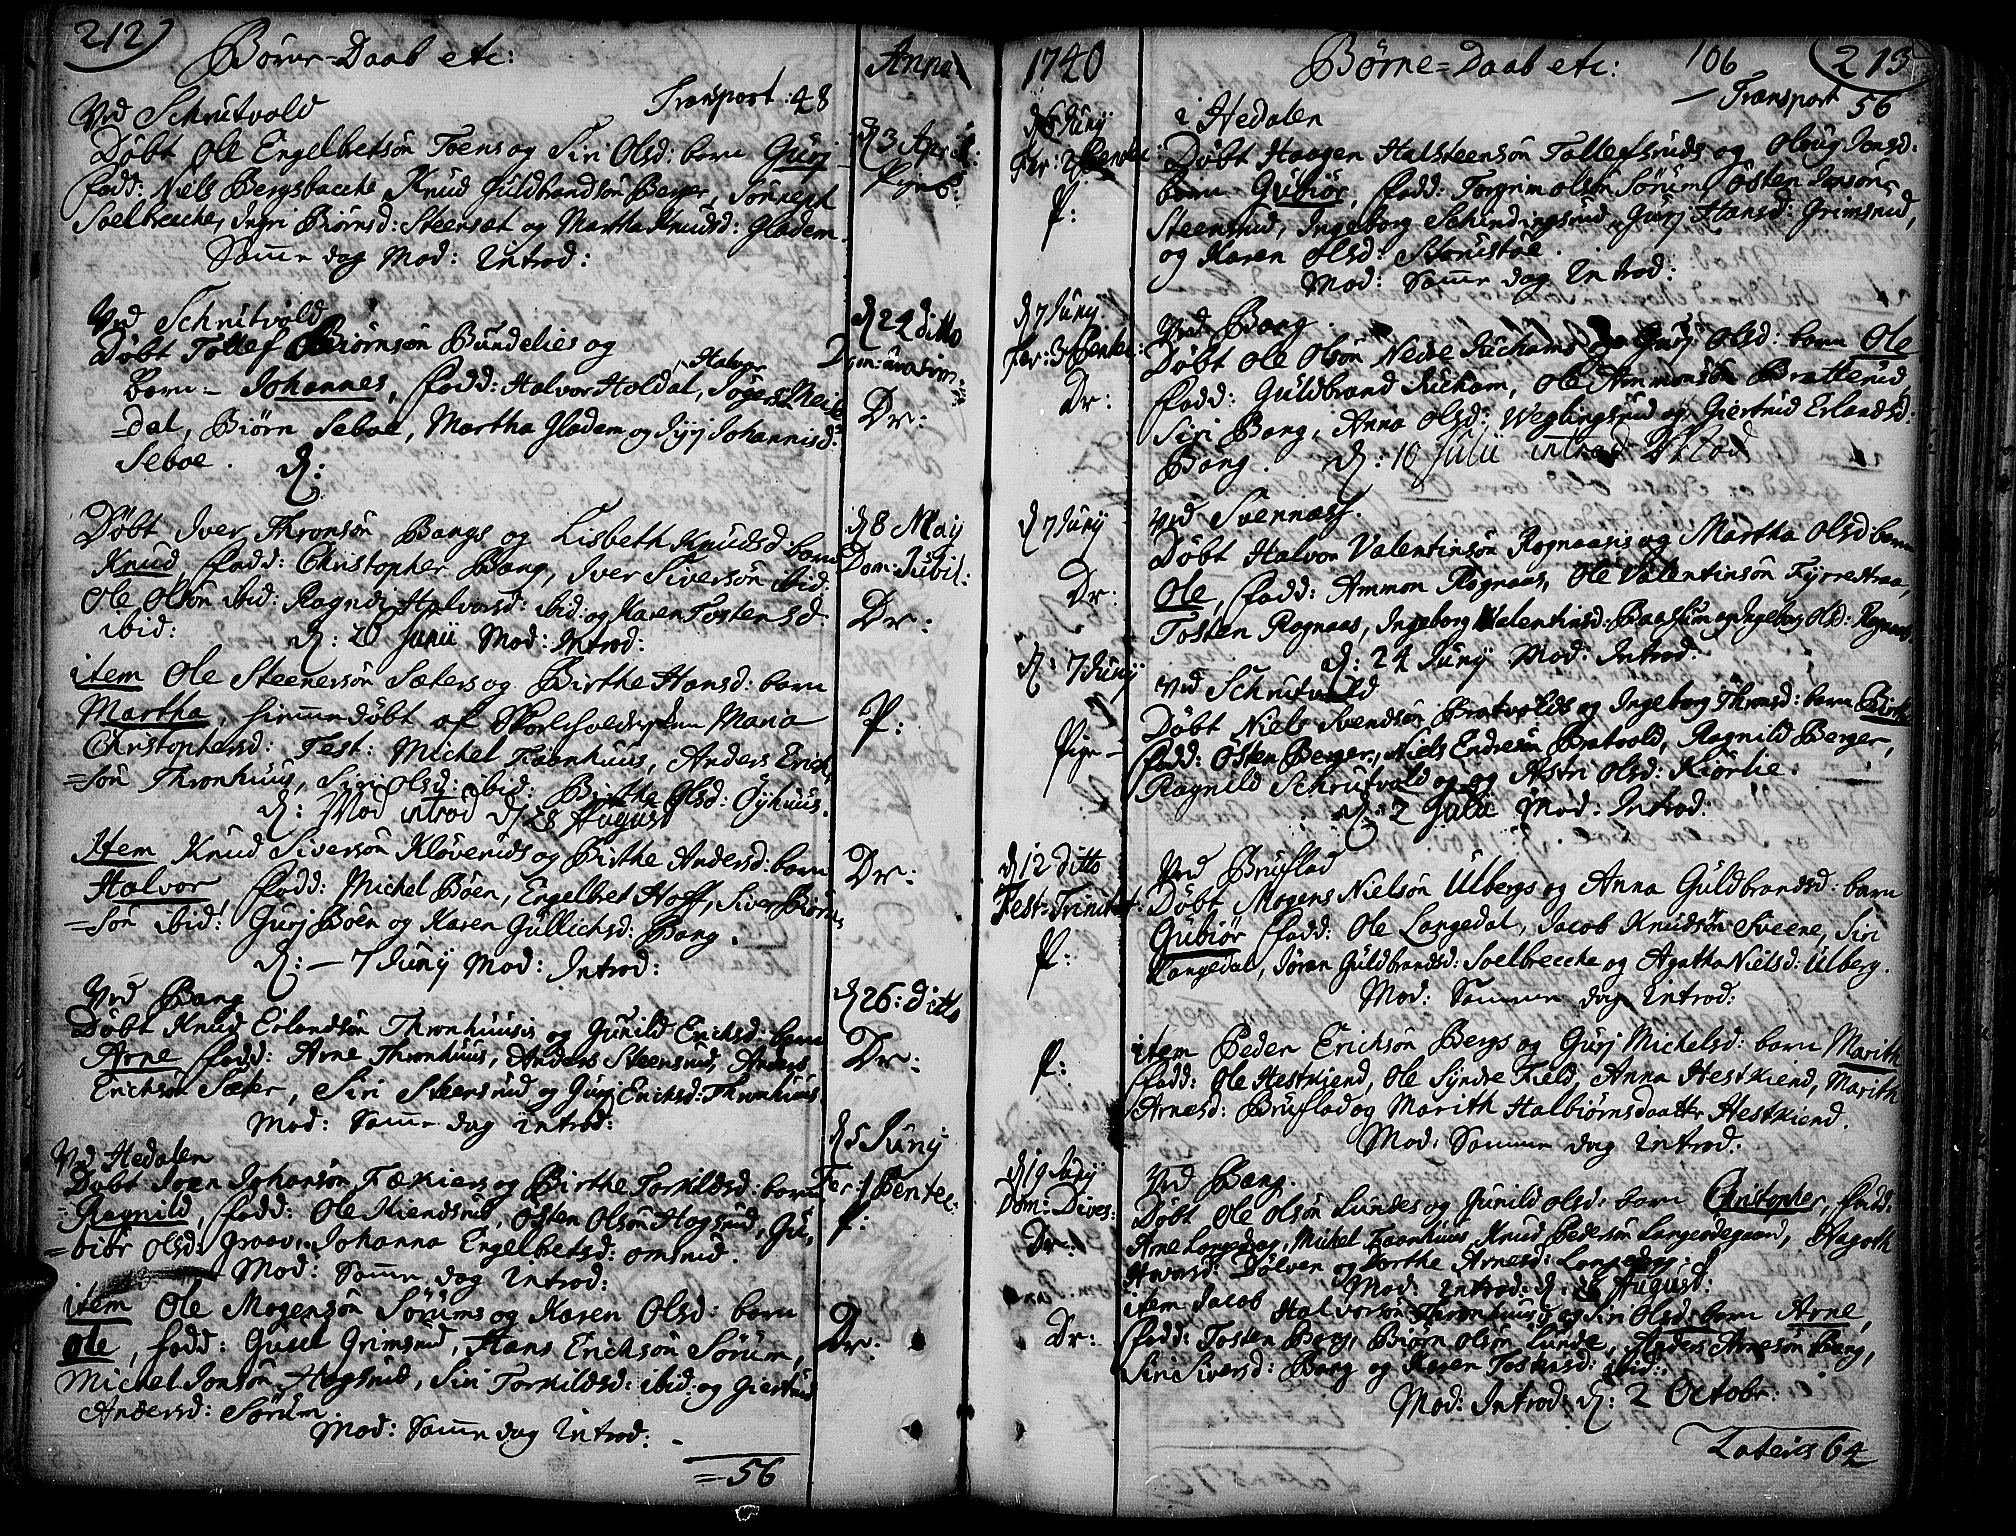 212)
Børne-Daab etc:
Anno
Ved Schrutvold
Transport: 48
Døbt Ole Engelbetsøn Toens og Siri Olsd: barn Gurj
d 3 April:
fadd: Niels Bergsbacche Knud Guldbrandsøn Berger,
Pige
Soelbecche, Ingri Biørnsd: Steenset og Martha Knudsd: Gladem.
Samme dag Mod: Introd:
Ved Schrutvold
d 24 ditto
Døbt Tollef Biørnsøn Bundelies og
Barn = Johannes, fadd: Halvor Holdal,
Halvor
Dr:
=dal, Biørn Seboe, Martha Gladem og Johannisd:
Seboe. d:
Døbt Iver Thronsøn Bangs og Lisbeth Knudsd: barn
d 8 May
Knud fadd: Christopher Bang, Iver Siversøn ibid:
Dom: Jubil:
Ole Olsøn ibid: Ragndi Halvorsd: ibid: og Karen Tostensd:
Dr:
ibid:
d: 20 Junii Mod: Introd:
item Ole Steenersøn Sæters og Birthe Hansd: barn
Martha, hiemmedøbt af Maria
P:
Christophersd: Test: Michel Faanhuus, Anders Erich
=søn Thronhuus, Siri Olsd: ibid: Birthe Olsd: Øyhuus.
d: Mod introd d 28 August
Item Knud Siversøn Kløveruds og Birthe Andersd: barn
Dr:
Halvor fadd: Michel Bøen, Engelbet Hoff, Siver Biørn
=søn ibid: Gurj Bøen og Karen Gullichsd: Bang.
d: — 7 Junij Mod: Introd:
Ved Bang
d 26: ditto
Døbt Knud Erlandsøn Thronhuusis og Gunild Erichsd: barn
Arne fadd: Arne Thronhuus, Anders Steensrud, Anders
Dr:
Erichsøn Sæter, Siri Steensrud og Gurj Erichsd: Thronhuus
Mod: Samme dag introd:
Ved Hedalen
d 5 Junij
Døbt Joen Johansøn Fækiers og Birthe Torkildsd: barn
Fer: 1 Pentec:
=Ragnild, fadd: Ole Kiendsrud, Østen Olsøn Hogsrud, Gu
P:
=biør Olsd: Graav, Johanna Engelbetsd: Omsrud.
Mod: Samme dag Introd:
item Ole Mogensøn Sørums og Karen Olsd: barn
Dr:
Ole, fadd: Grimsrud, Hans Erichsøn Sørum,
Michel Jonsøn Hogsrud, Siri Torkildsd: ibid: og Giertrud
Andersd: Sørum.
Mod: Samme dag Introd:
=56
1740
Børne-Daab etc:
106
213
Transport 56
d 6 Junij
i Hedalen
Fer: 2
Døbt Haagen Halsteensøn Tollefsruds og Oloug Jonsd:
P:
barn Gubiør, fadd: Torgrim Olsøn Sørum, Tosten Jonsøn
Steensrud, Ingeborg Schindingsrud, Gurj Hansd: Grimsrud,
og Karen Olsd: Stenistøe.
Mod: Samme dag Introd:
d 7 Junij
Ved Bang.
Fer: 3 Pentec:
Døbt Ole Olsøn Nedre Juchams og Gurj Olsd: barn Ole
Dr:
fadd: Guldbrand Jucham, Ole Ammonsøn Bratterud,
Siri Bang, Anna Olsd: Weglingsrud og Giertrud Erlandsd:
Bang. d: 10 Julii introd Mod
d 7 Junij
Ved Svennæss.
Døbt Halvor Valentinsøn Rognaasis og Martha Olsd barn
Dr:
Ole, fadd: Ammon Rognaas, Ole Valentinsøn Fyrrestraa,
Tosten Rognaas, Ingeborg Valentinsd: Baggum og Ingeborg Olsd: Rognaas
d: 24 Junij Mod: Introd:
d: 7 Junij
Ved Schrutvold
Døbt Niels Svendsøn Bratvolds og Ingeborg Thronsd: barn Birthe
Pige —
fadd: Østen Berger, Niels Endresøn Bratvold, Ragnild Berger,
Ragnild Schrutvold og Astri Olsd: Kiørlie.
d: 2 Julii Mod: Introd:
d 12 ditto
Ved Bruflad
Fest: Trinitat:
Døbt Mogens Nielsøn Ulbergs og Anna Guldbrandsd: barn
P:
Gubiør fadd: Ole Langedal, Jacob Knudsøn Sveene, Siri
Langedal, Jøran Guldbrandsd: Soelbrecche og Agatha Nielsd: Ulberg.
Mod: Samme dag introd:
P:
item Peder Erichsøn Bergs og Gurj Michelsd: barn Marith
fadd: Ole Hestkiend, Ole Syndre Field, Anna Hestkiend, Marith
Arnesd: Bruflad og Marith Halbiørnsdaatter Hestkiend.
Mod: Samme dag introd:
d 19 Junij
Ved Bang.
Dom: Dives:
Døbt Ole Olsøn Lundes og Gunild Olsd: barn Christopher, fadd:
Dr:
Arne Michel Faanhuus Knud Pedersøn Langerdegaard, Ragnth
Havorsd: Dølven og Dorthe Arnesd:
Mod: introd: d: 28 August:
item Jacob Halvorsøn Thronhuus og Siri Olsd: barn Arne,
Dr:
fadd: Tosten Bang, Biørn Olsøn Lunde, Anders Arnesøn Bang,
Siri Siversd: Bang og Karen Tostensd: ibid:
Mod: Introd: d: 2 Octobr:
Lateris 64